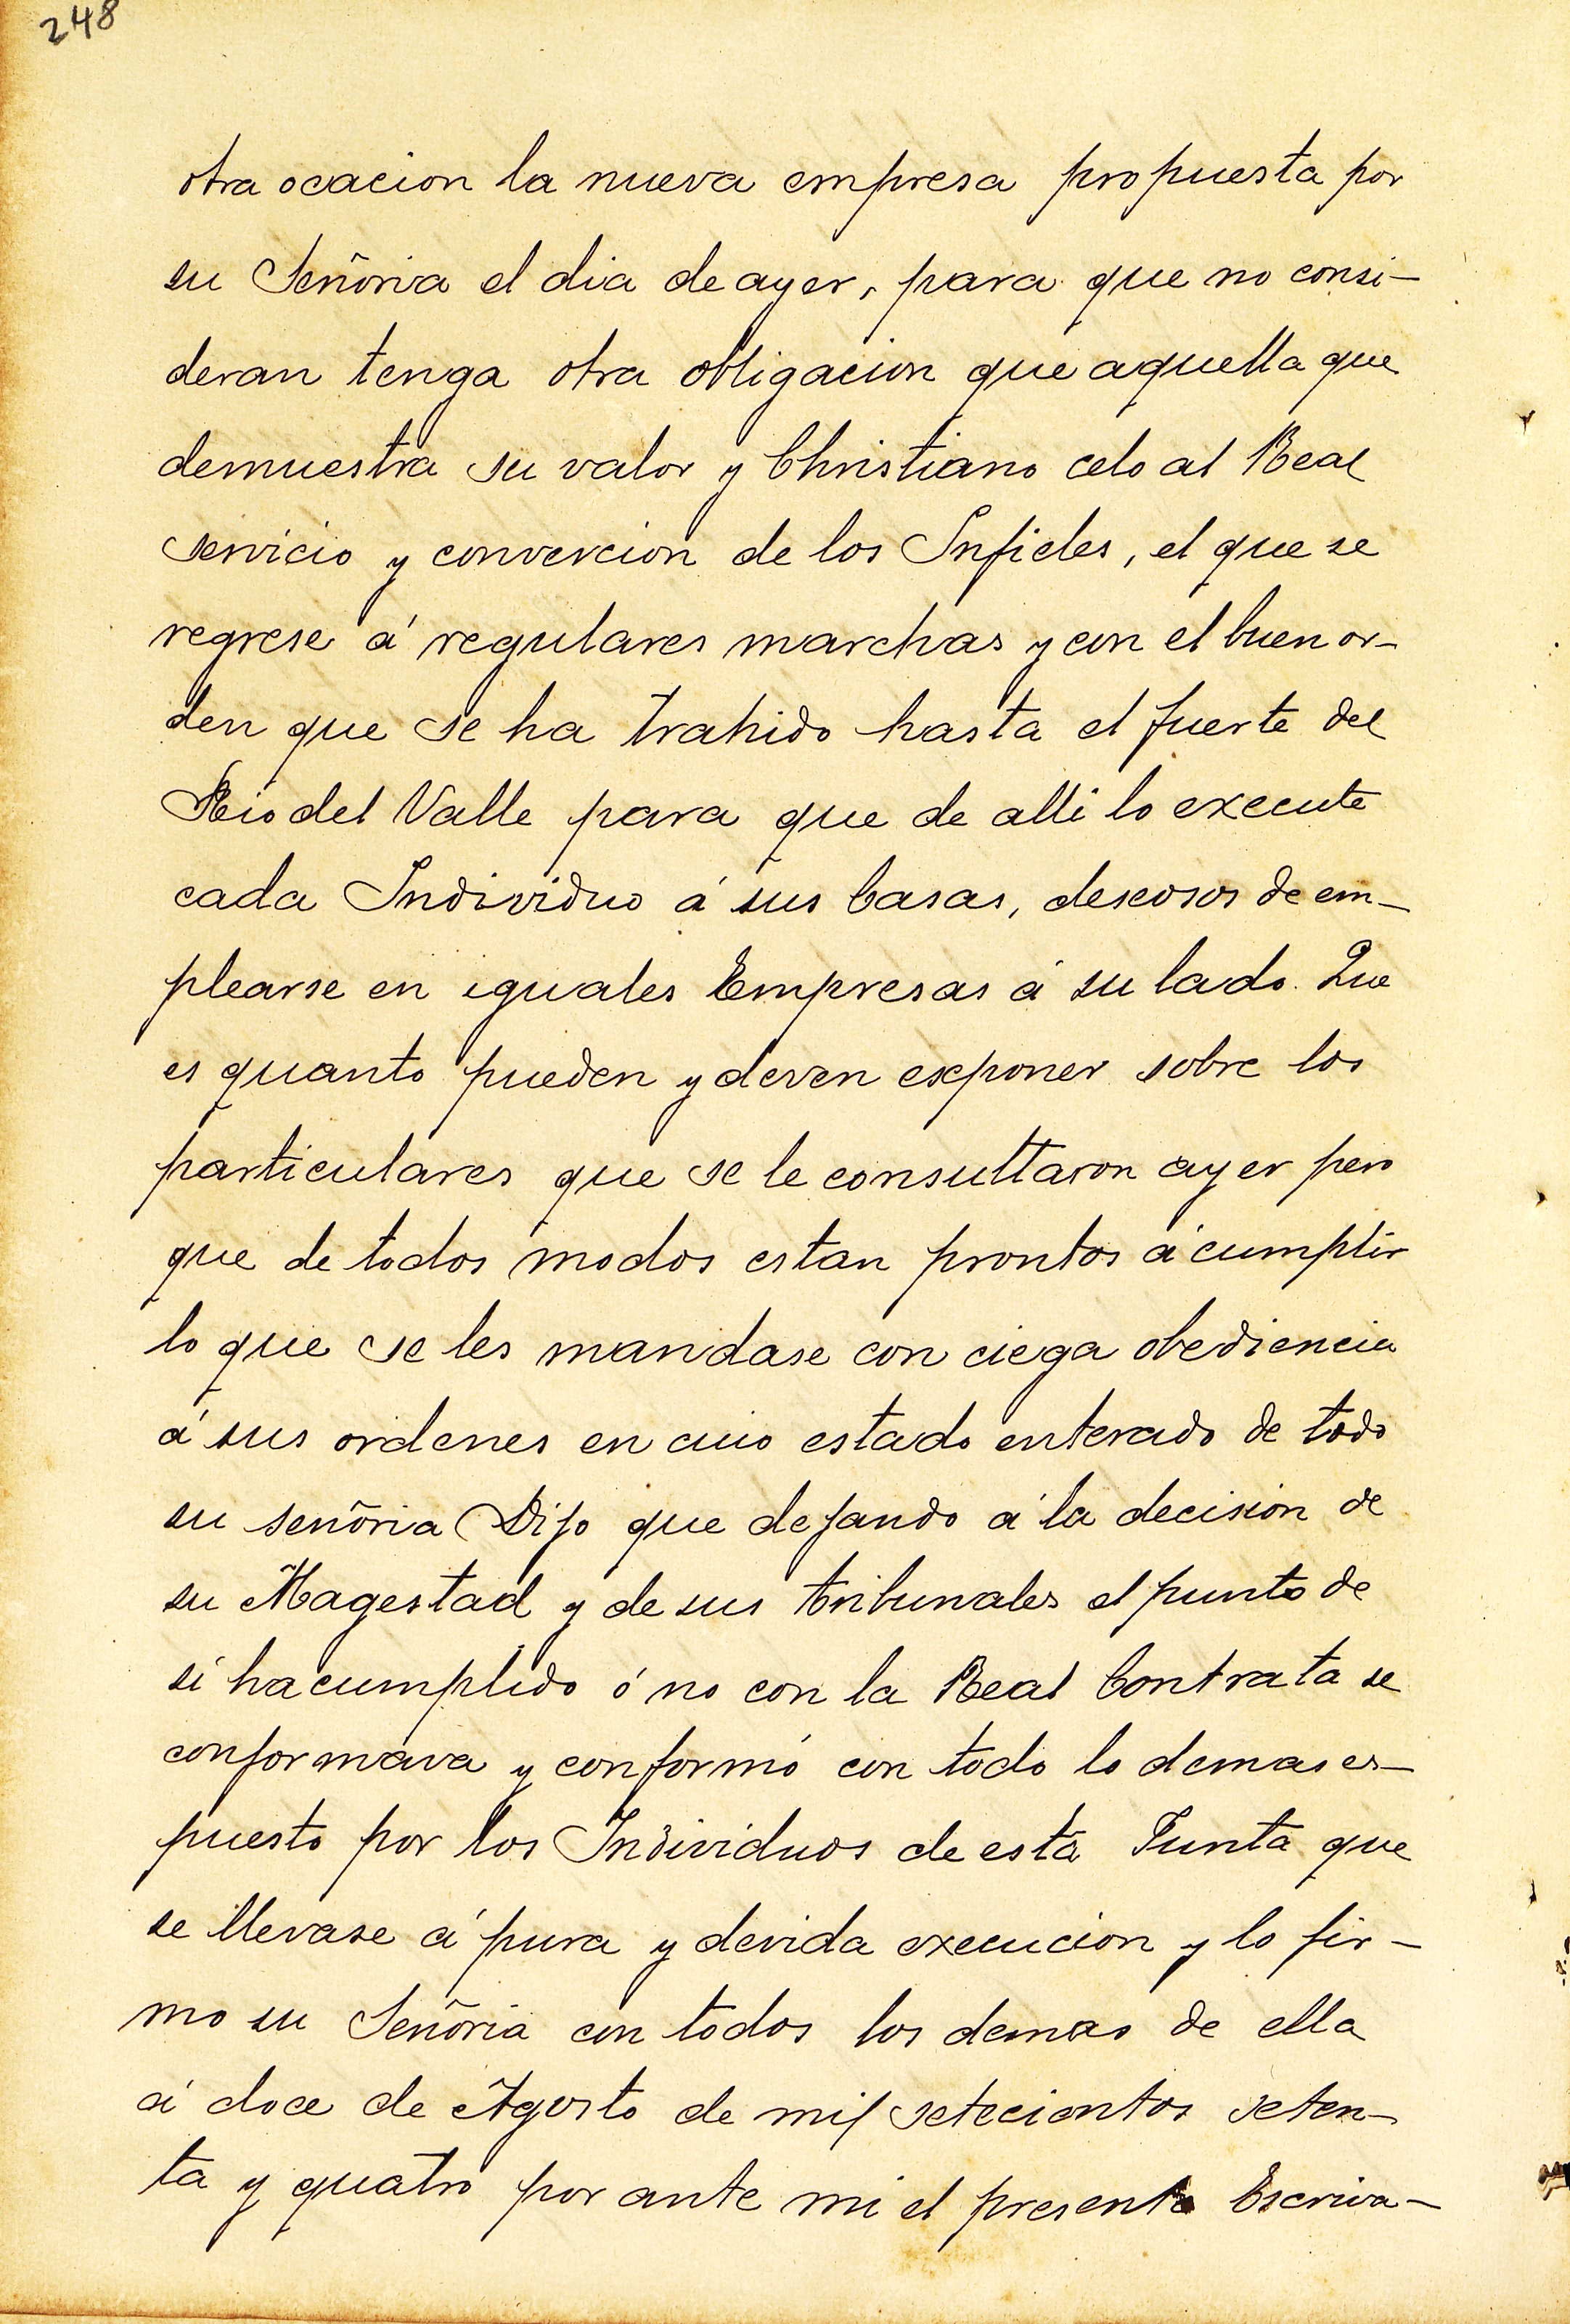 248
otra ocacion la nueva empresa propuesta por
su Señoria el dia de ayer, para que no consi-
deran tenga otra obligacion que aquella que
demuestra su valor y Christiano celo al Real
servicio y convercion de los Infieles, el que se
regrese á regulares marchas y con el buen or-
den que se ha trahido hasta el fuerte del
Rio del Valle para que de alli lo execute
cada Individuo á sus Casas, deseosos de em-
plearse en iguales Empresas á su lado. Que
es quanto pueden y deven exponer sobre los
particulares que se le consultaron ayer pero
que de todos modos estan prontos á cumplir
lo que se les mandase con ciega obediencia
á sus ordenes en cuio estado enterado de todo
su señoria Dijo que dejando á la decision de
su Magestad y de sus tribunales el punto de
si ha cumplido ó no con la Real Contrata se
conformava y conformó con todo lo demas es-
puesto por los Individuos de esta Junta que
se llevase á pura y devida execucion y lo fir-
mo su Señoria con todos los demas de ella
á doce de Agosto de mil setecientos seten-
ta y quatro por ante mi el presente Escriva-